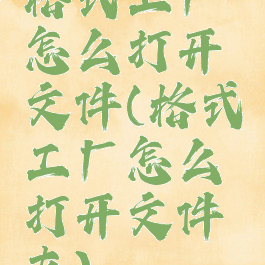 格式工厂
怎么打开
文件(格式
工厂怎么
打开文件
夹)